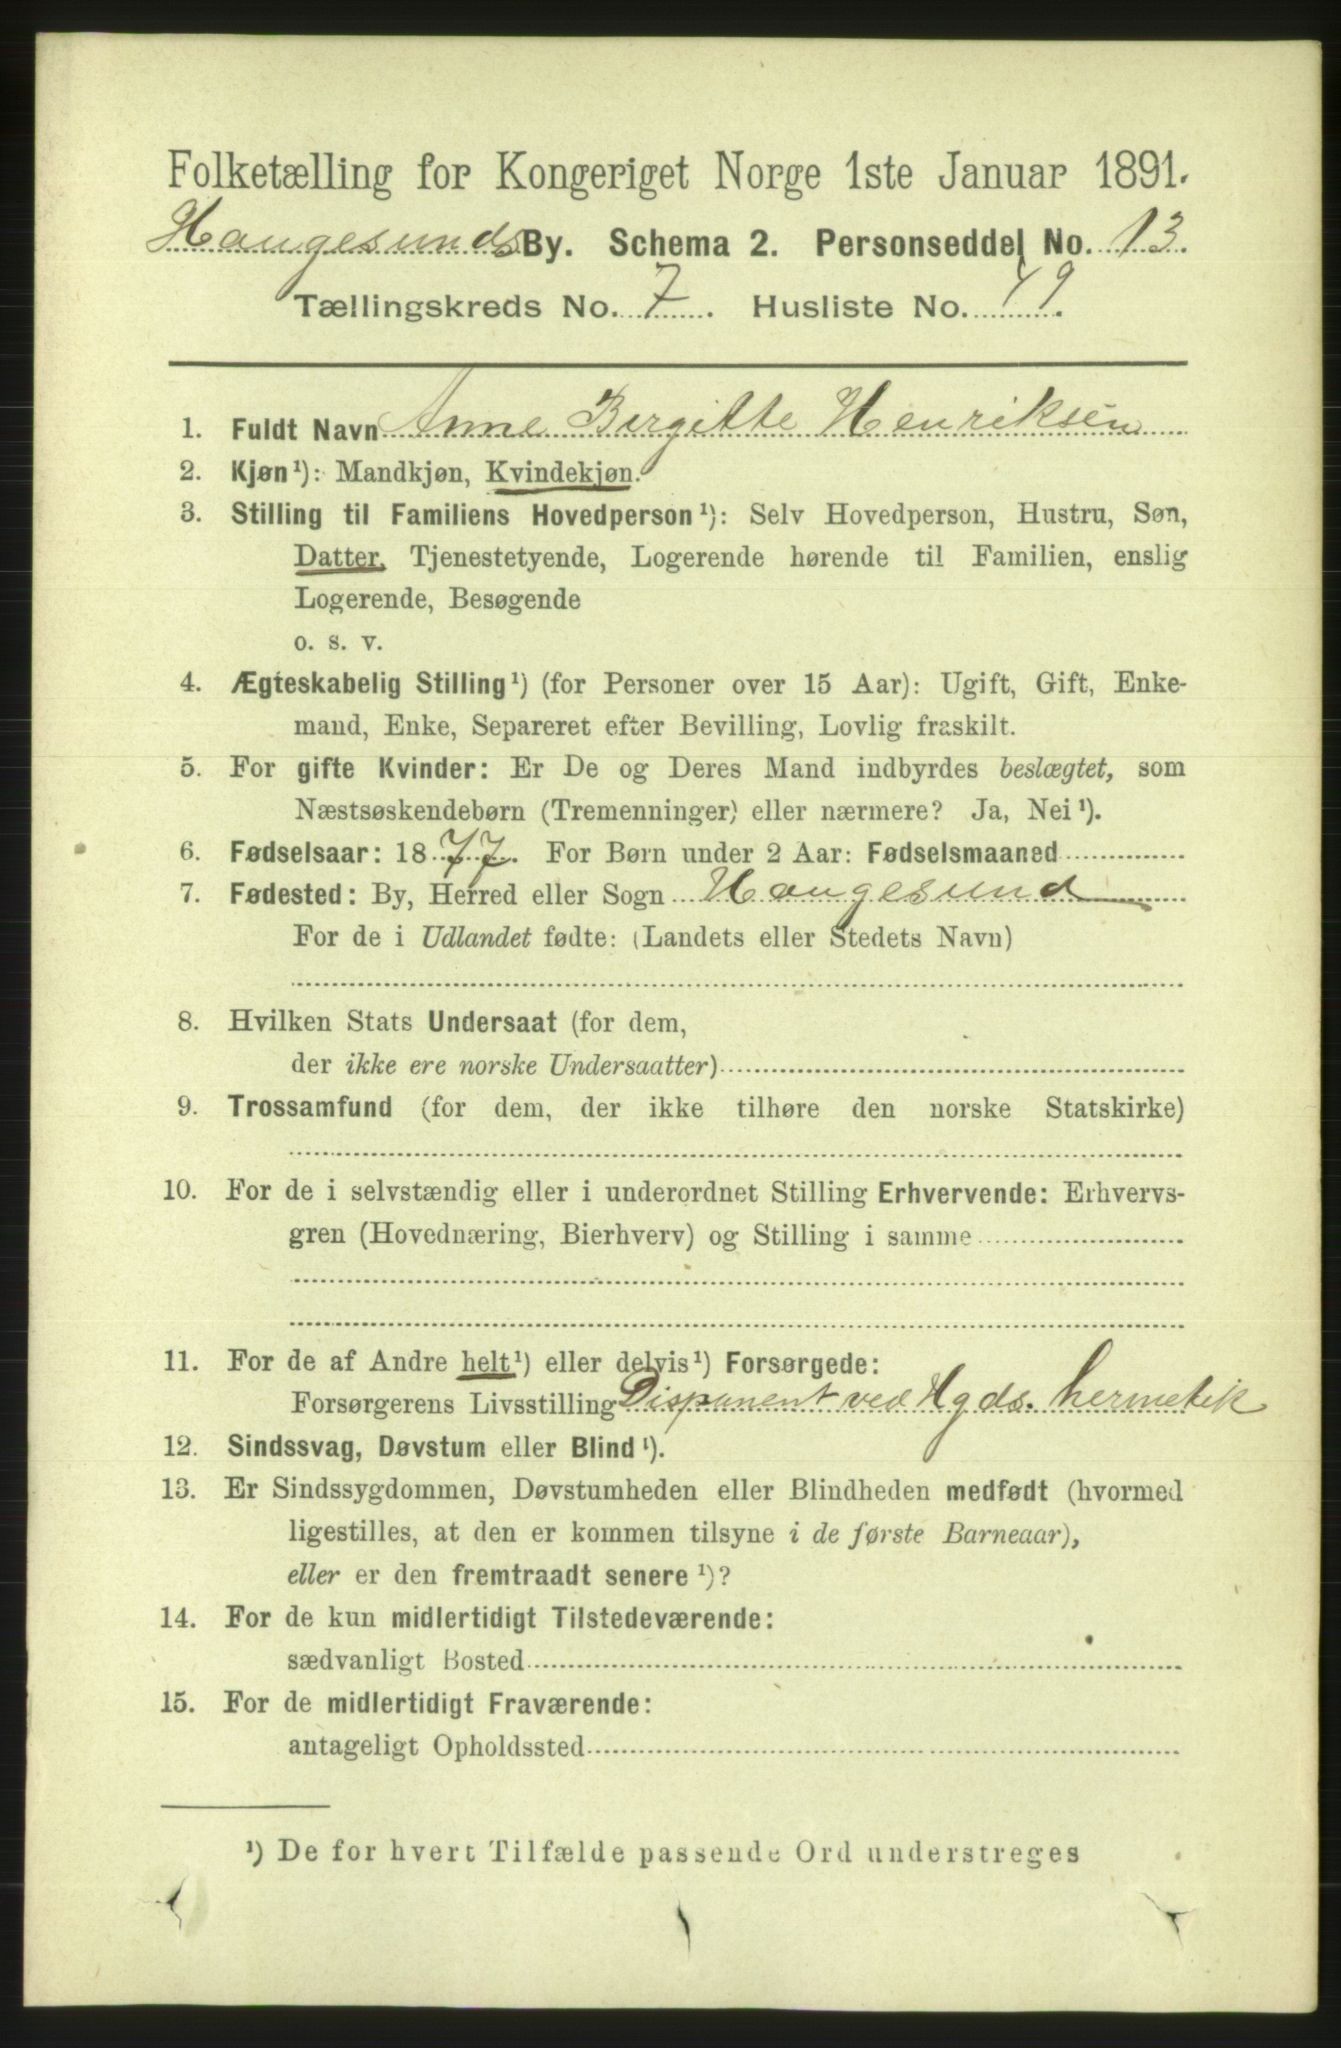 Folketælling for Kongeriget Norge 1ste Januar 1891.
Haugesunds By. Schema 2. Personseddel No. 13.
Tællingskreds No. 7. Husliste No. 49.
1. Fuldt Navn Anne Birgitte Henriksen
2. Kjøn¹): Mandkjøn, Kvindekjøn.
3. Stilling til Familiens Hovedperson¹): Selv Hovedperson, Hustru, Søn,
Datter, Tjenestetyende, Logerende hørende til Familien, enslig
Logerende, Besøgende
o. s. v.
4. Ægteskabelig Stilling¹) (for Personer over 15 Aar): Ugift, Gift, Enke-
mand, Enke, Separeret efter Bevilling, Lovlig fraskilt.
5. For gifte Kvinder: Er De og Deres Mand indbyrdes beslægtet, som
Næstsøskendebørn (Tremenninger) eller nærmere? Ja, Nei¹).
6. Fødselsaar: 1877. For Børn under 2 Aar: Fødselsmaaned
7. Fødested: By, Herred eller Sogn Haugesund
For de i Udlandet fødte: (Landets eller Stedets Navn)
8. Hvilken Stats Undersaat (for dem,
der ikke ere norske Undersaatter)
9. Trossamfund (for dem, der ikke tilhøre den norske Statskirke)
10. For de i selvstændig eller i underordnet Stilling Erhvervende: Erhvervs-
gren (Hovednæring, Bierhverv) og Stilling i samme
11. For de af Andre helt¹) eller delvis¹) Forsørgede:
Forsørgerens Livsstilling Disponent ved Hgds. hermetik
12. Sindssvag, Døvstum eller Blind¹).
13. Er Sindssygdommen, Døvstumheden eller Blindheden medfødt (hvormed
ligestilles, at den er kommen tilsyne i de første Barneaar),
eller er den fremtraadt senere¹)?
14. For de kun midlertidigt Tilstedeværende:
sædvanligt Bosted
15. For de midlertidigt Fraværende:
antageligt Opholdssted
¹) De for hvert Tilfælde passende Ord understreges